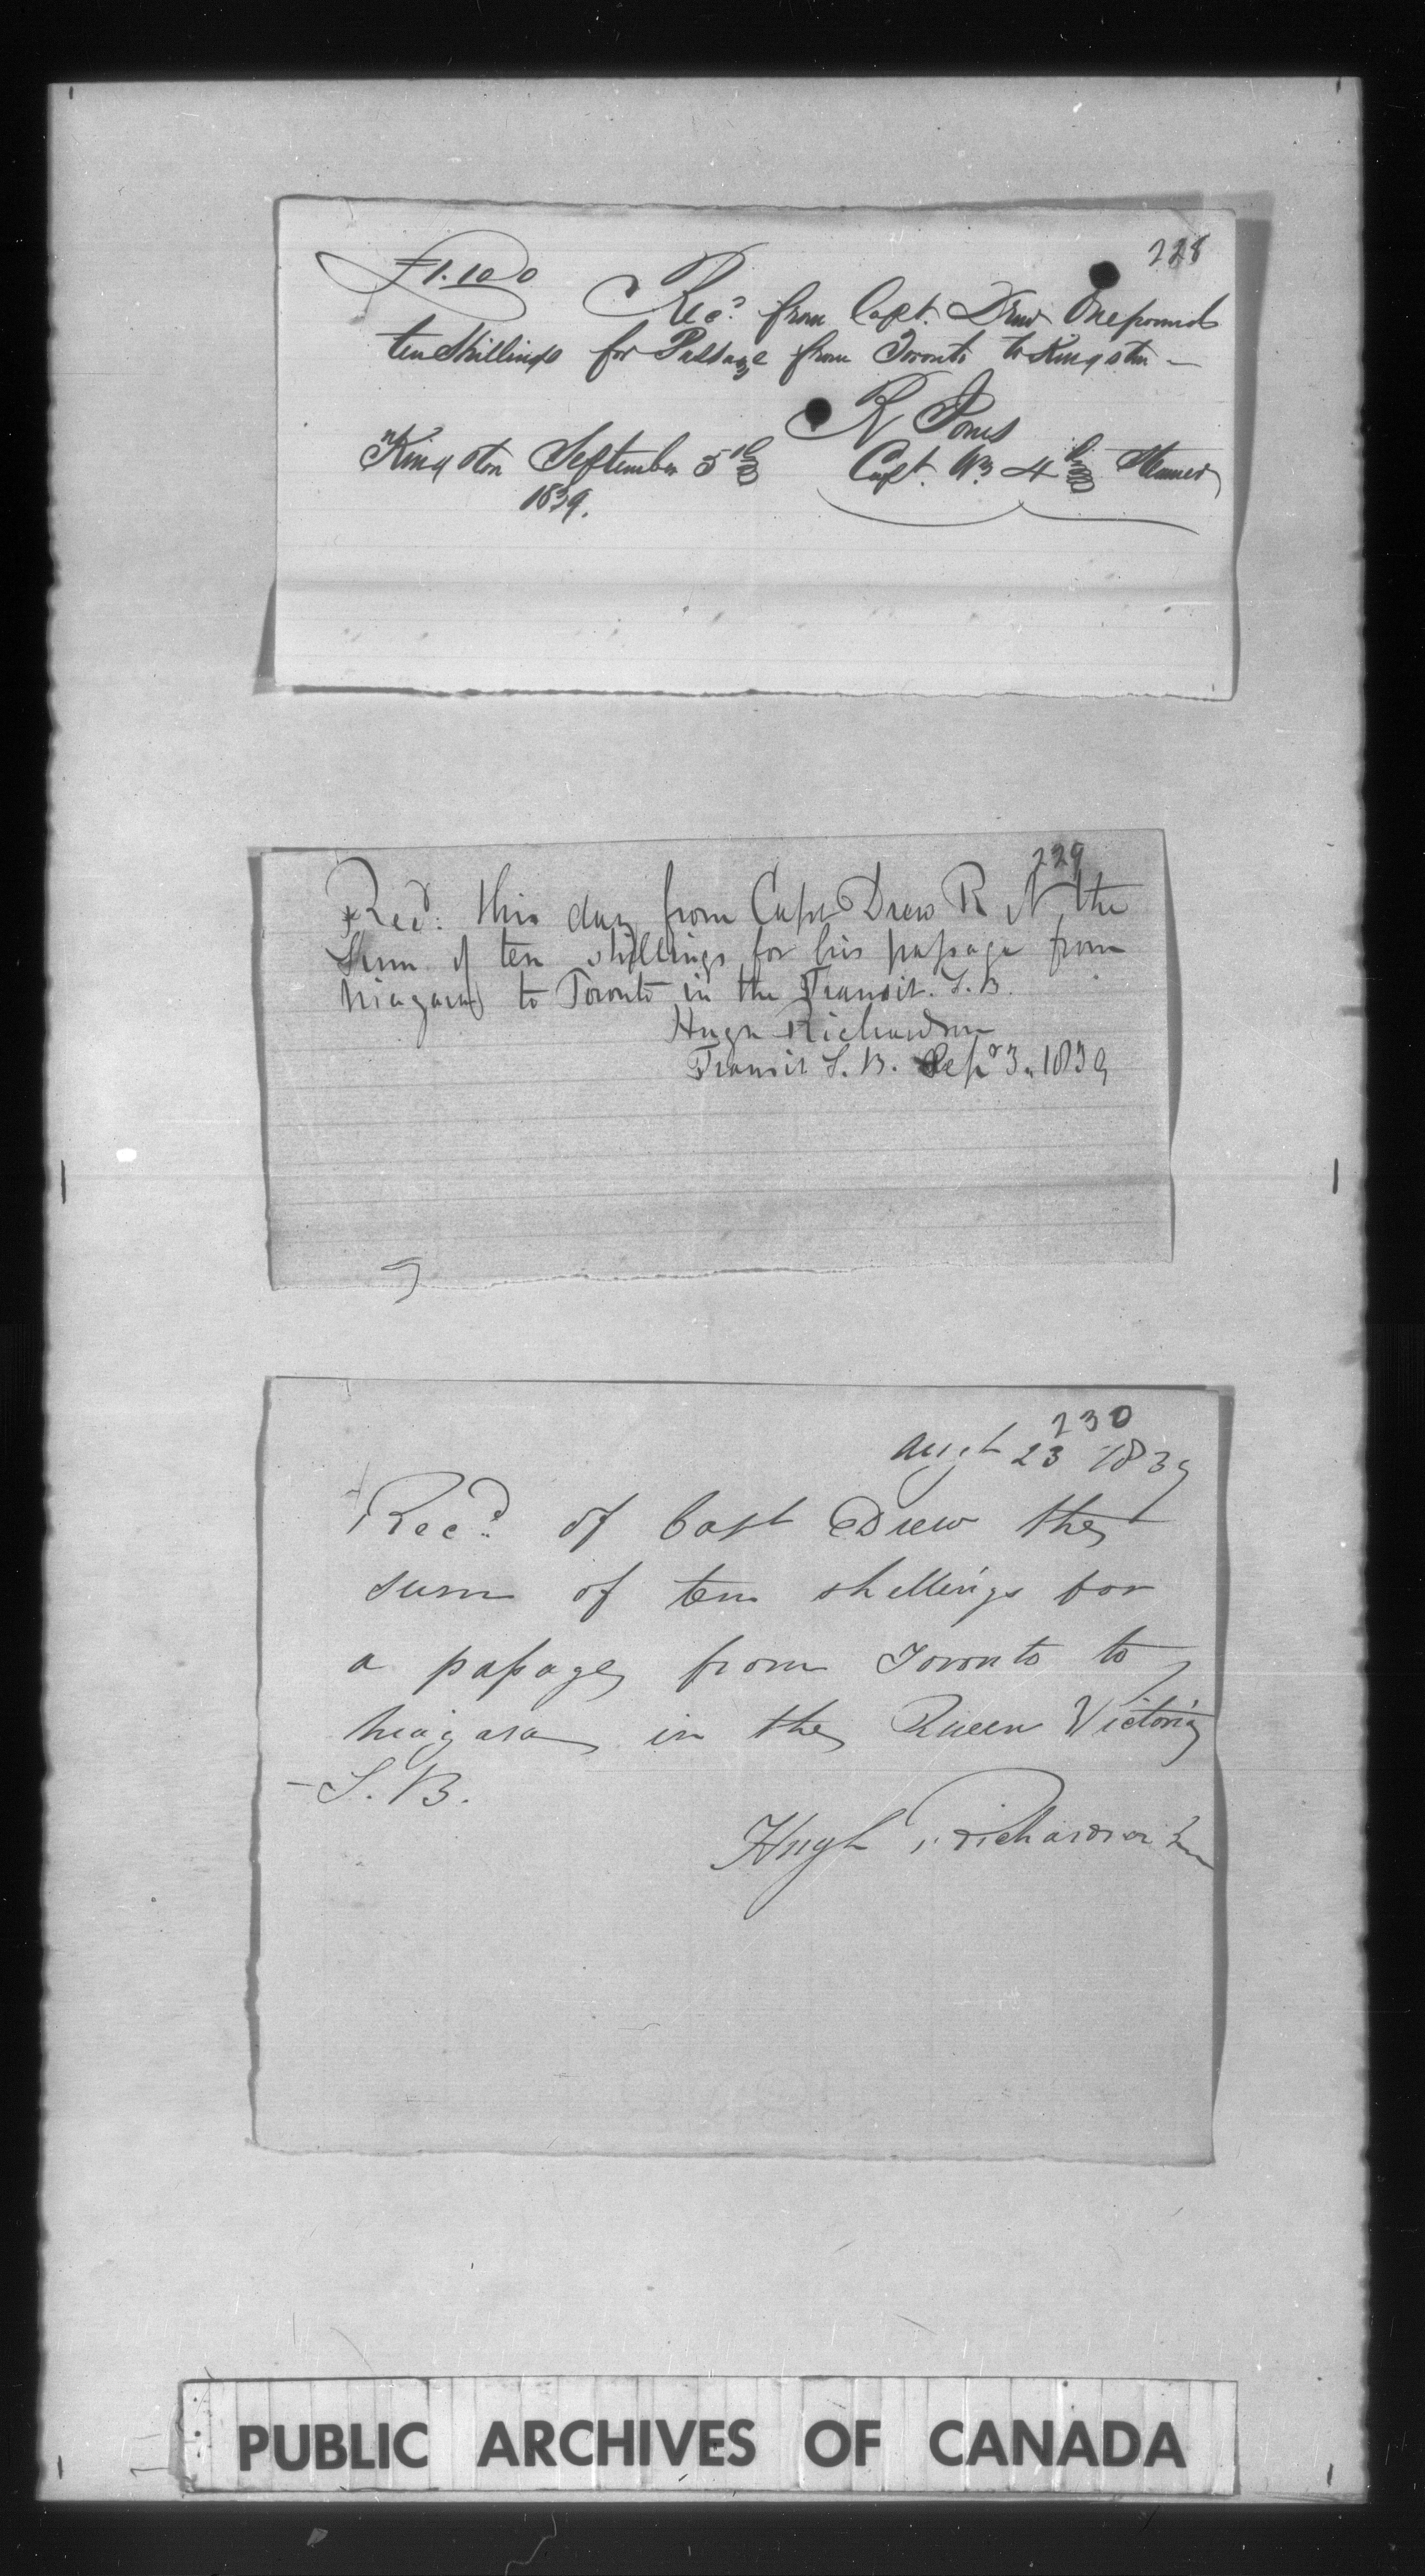 228
£1.10.0
Rec.d from Capt. Drew One pound
ten Shillings for Passage from Toronto to Kingston —
R Jones
Kingston September 5th Capt. Wm 4th Steamer
1839.
229
Recd. this day from Capt Drew R N. the
Sum of ten shillings for his passage from
Niagara to Toronto in the Transit. S. B.
Hugh Richardson
Transit S. B. Sepr 3. 1839
230
Augt 23 1839
Rec.d of Capt Drew the
sum of ten shillings for
a passage from Toronto to
Niagara in the Queen Victoria
– S. B.
Hugh Richardson Jun
PUBLIC ARCHIVES OF CANADA